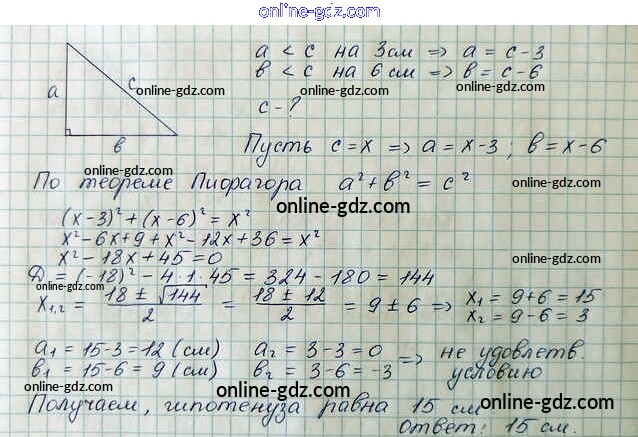 online-gdz.com
a < c на 3 см => a = c - 3
в < c на 6 см => в = c - 6
c - ?
a
c
в
online-gdz.com
online-gdz.com
online-gdz.com
Пусть c = x => a = x - 3 ; в = x - 6
online-gdz.com
online-gdz.com
По теореме Пифагора a² + в² = c²
online-gdz.com
(x-3)² + (x-6)² = x²
x² - 6x + 9 + x² - 12x + 36 = x²
online-gdz.com
x² - 18x + 45 = 0
online-gdz.com
Д = (-18)² - 4·1·45 = 324 - 180 = 144
online-gdz.com
x₁,₂ = (18 ± √144)/2 = (18 ± 12)/2 = 9 ± 6 => x₁ = 9+6 = 15
x₂ = 9-6 = 3
online-gdz.com
online-gdz.com
a₁ = 15-3 = 12 (см) a₂ = 3-3 = 0 => не удовлетв.
в₁ = 15-6 = 9 (см) в₂ = 3-6 = -3 условию
online-gdz.com
online-gdz.com
online-gdz.com
Получаем, гипотенуза равна 15 см
ответ: 15 см.
online-gdz.com